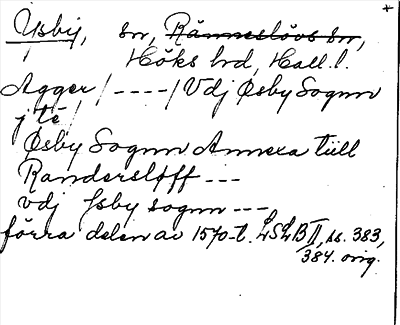 Ysby, sn, Ränneslövs sn,
Höks hd, Hall.l.
Agger /----/ Vdj Øsby Sognn
j té
Øsby Sognn Annexa till
Randersløff ---
vdj Ysby sognn ---
förra delen av 1570-t. LSLB II, ss. 383,
384. orig.